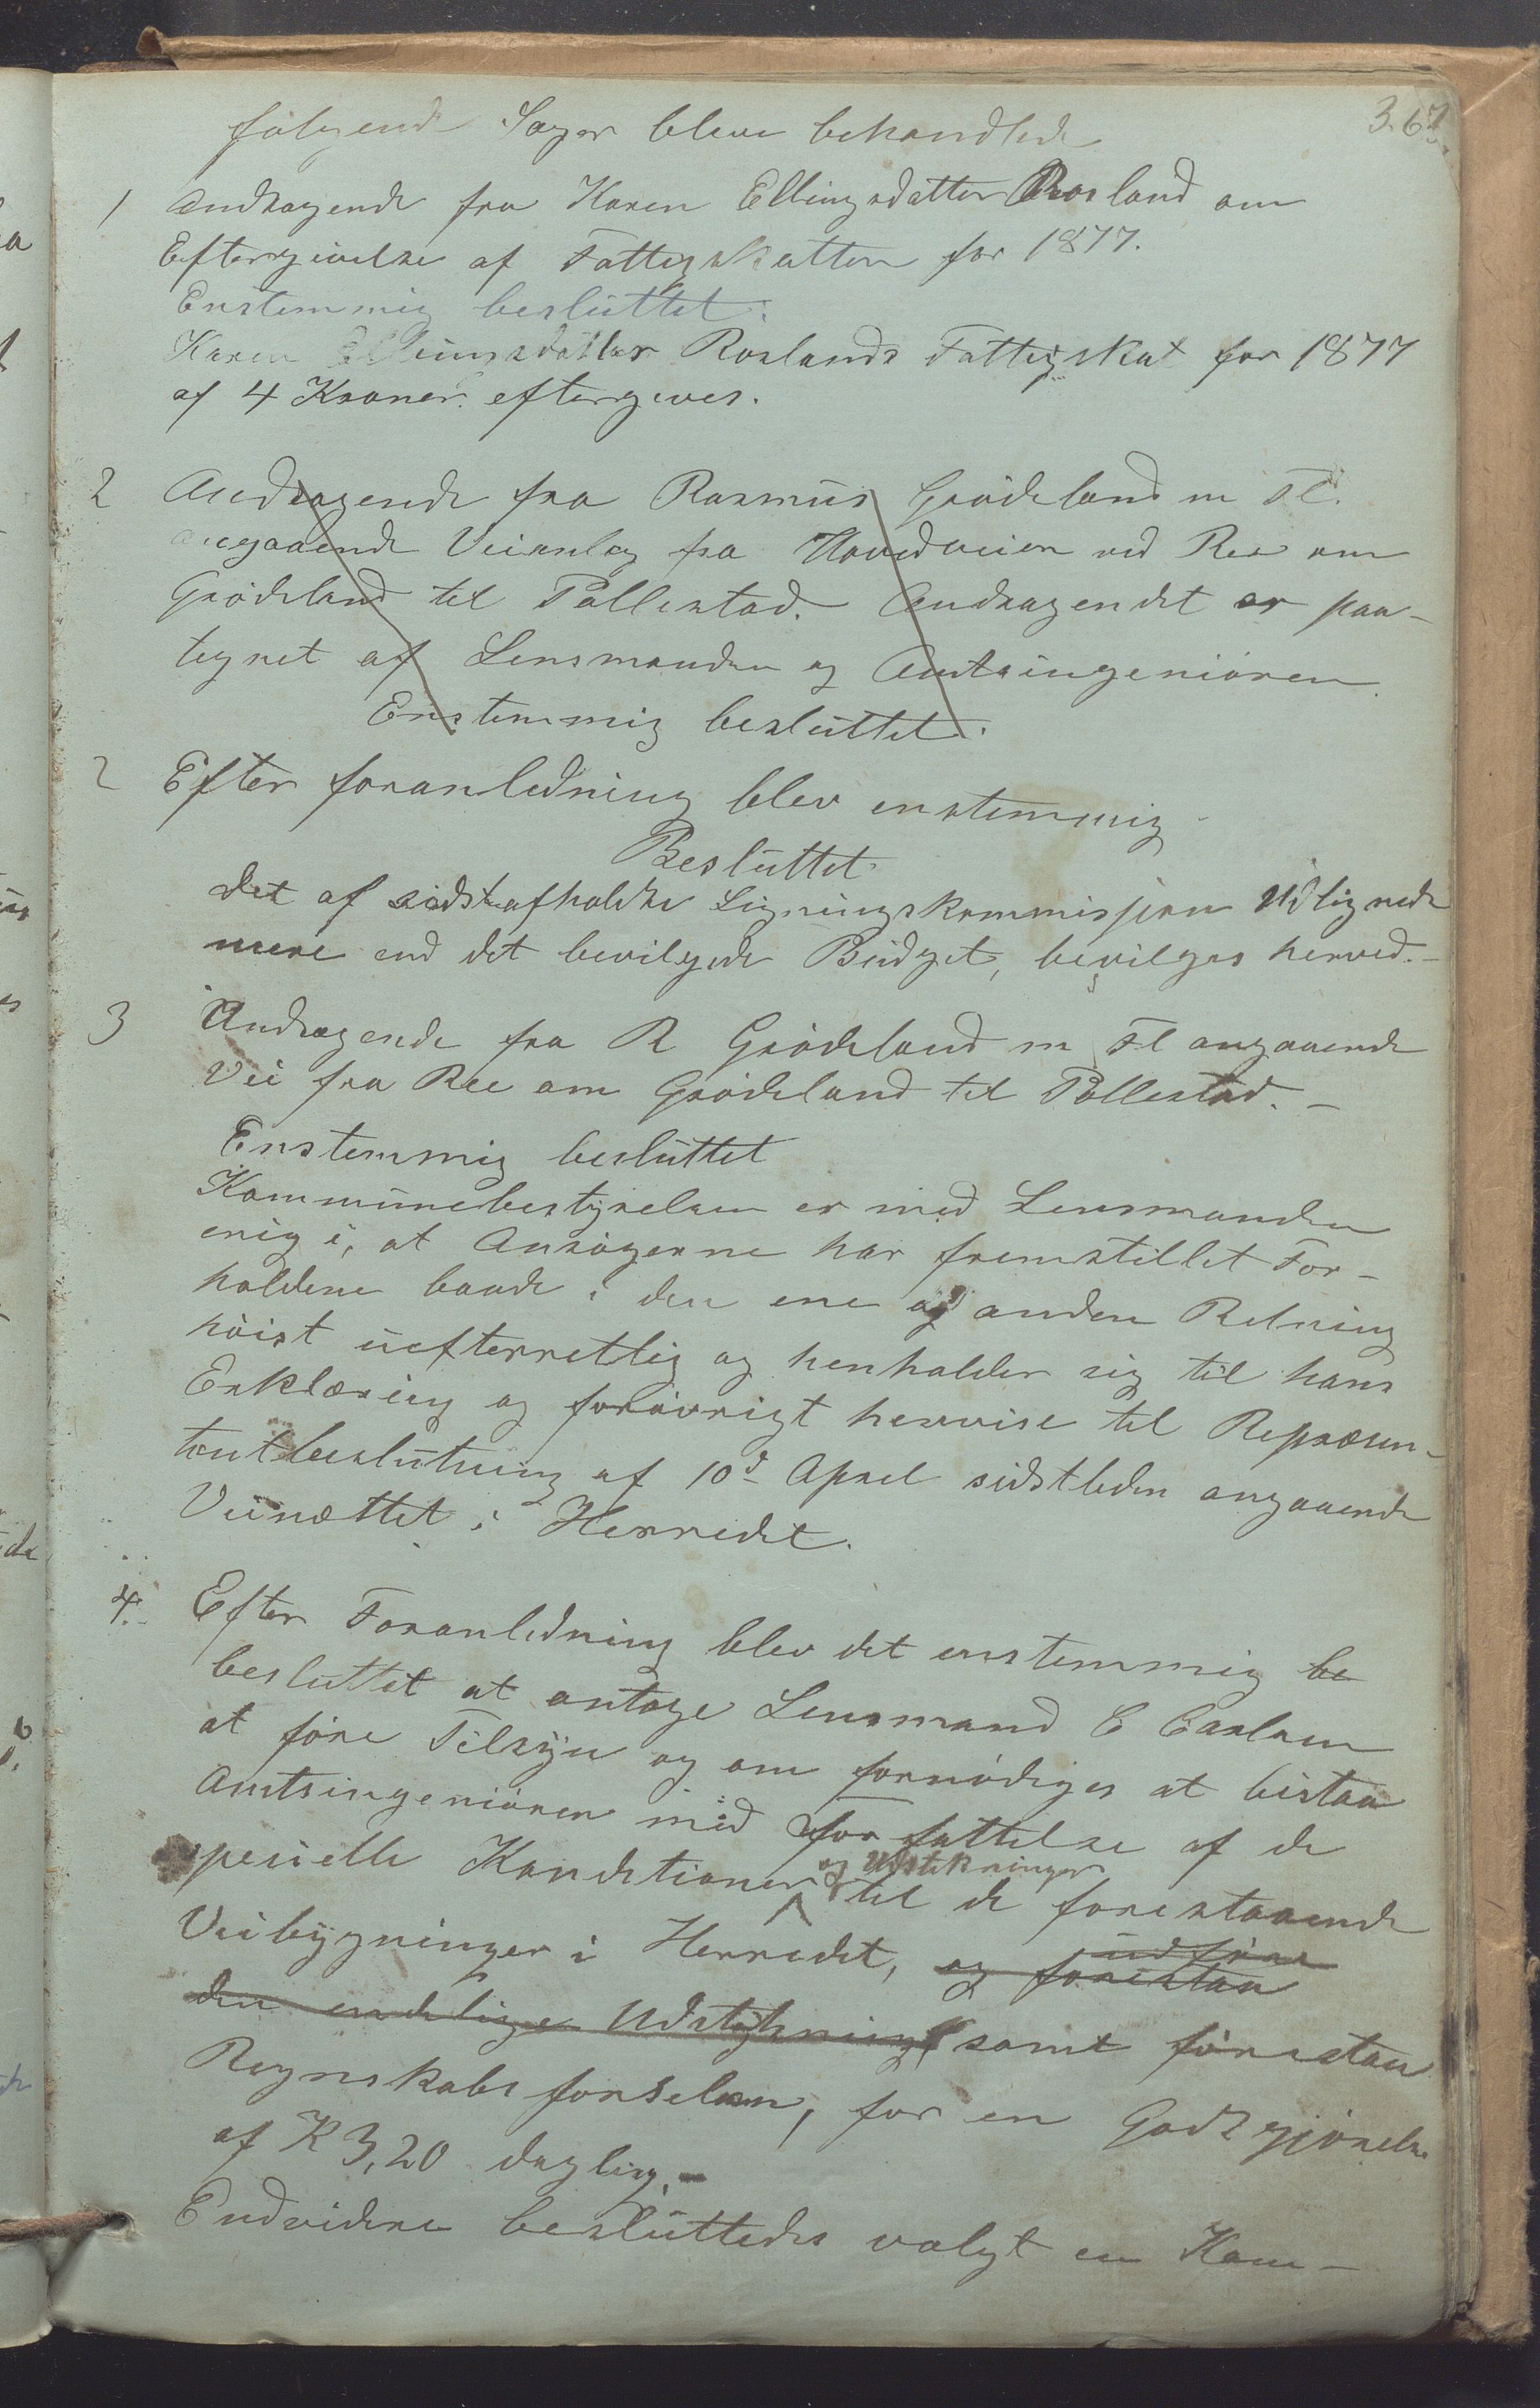 367.
følgende Sager bleve behandlede
1 Andragende fra Karen Ellingsdatter Rosland om
Eftergivelse af Fattigskatten for 1877.
Enstemmig besluttet:
Karen Ellingsdatter Roslands Fattigskat for 1877
af 4 Kroner eftergives.
2 Andragende fra Rasmus Grödeland m Fl.
angaaende Veianlæg fra Hovedveien ved Ree om
Grödeland til Pollestad. Andragendet er paa-
tegnet af Lensmanden og Amtsingeniören
Enstemmig besluttet:
2 Efter foranledning blev enstemmig
Besluttet
det af sidstafholdte Ligningskommisjon Udlignede
mere end det bevilgede Budget, bevilges herved.-
3 Andragende fra R Grödeland m Fl angaaende
Vei fra Ree om Grödeland til Pollestad. -
Enstemmig besluttet
Kommunebestyrelsen er med Lensmanden
enig i, at Ansögerne har fremstillet For-
holdene baade i den ene og anden Retning
höist uefterretlig og henholder sig til hans
Erklæring og forövrigt henvise til Repræsen-
tantbeslutning af 10d April sidstleden angaaende
Veinættet i Herredet.
4. Efter Foranledning blev det enstemmig be
besluttet at antage Lensmand E Carlsen
at före Tilsyn og om fornödiges at bistaa
Amtsingeniören med Forfattelse af de
specielle Konditioner og Udstikninger til de forestaaende
Veibygninger i Herredet, og forestaa udföre
den endelige Udstykning samt forestaa
Regnskabsförselen, for en Godtgjörelse
af K 3,20 daglig. -
Endvidere besluttedes valgt en Kom-